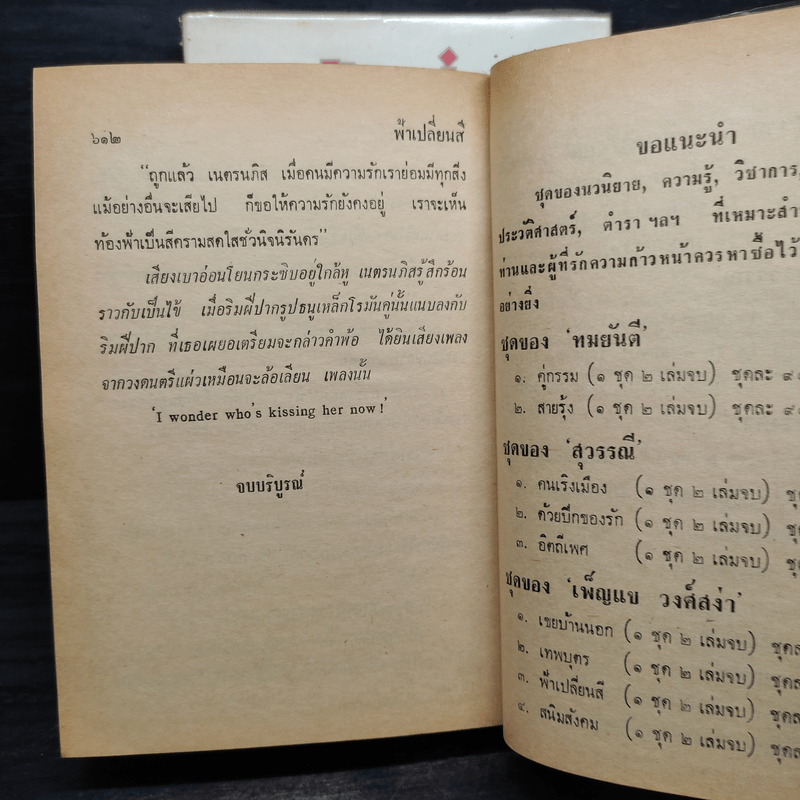 ๖๑๒ ฟ้าเปลี่ยนสี
“ถูกแล้ว เนตรนภิส เมื่อคนมีความรักเราย่อมมีทุกสิ่ง
แม้อย่างอื่นจะเสียไป ก็ขอให้ความรักยังคงอยู่ เราจะเห็น
ท้องฟ้าเป็นสีครามสดใสชั่วนิจนิรันดร”
เสียงเบาอ่อนโยนกระซิบอยู่ใกล้หู เนตรนภิสรู้สึกร้อน
ราวกับเป็นไข้ เมื่อริมฝีปากรูปธนูเหล็กโรมันคู่นั้นแนบลงกับ
ริมฝีปาก ที่เธอเผยอเตรียมจะกล่าวคำพ้อ ได้ยินเสียงเพลง
จากวงดนตรีแผ่วเหมือนจะล้อเลียน เพลงนั้น
'I wonder who's kissing her now!'
จบบริบูรณ์
ขอแนะนำ
ชุดของนวนิยาย, ความรู้, วิชาการ,
ประวัติศาสตร์, ตำรา ฯลฯ ที่เหมาะสำ
ท่านและผู้ที่รักความก้าวหน้าควรหาซื้อไว้
อย่างยิ่ง
ชุดของ 'ทมยันตี'
๑. คู่กรรม (๑ ชุด ๒ เล่มจบ) ชุดละ
๒. สายรุ้ง (๑ ชุด ๒ เล่มจบ) ชุดละ
ชุดของ 'สุวรรณี'
๑. คนเริงเมือง (๑ ชุด ๒ เล่มจบ) ชุ
๒. ด้วยปีกของรัก (๑ ชุด ๒ เล่มจบ) ชุ
๓. อิตถีเพศ (๑ ชุด ๒ เล่มจบ) ชุ
ชุดของ 'เพ็ญแข วงศ์สง่า'
๑. เขยบ้านนอก (๑ ชุด ๒ เล่มจบ) ชุดละ
๒. เทพบุตร (๑ ชุด ๒ เล่มจบ) ชุดล
๓. ฟ้าเปลี่ยนสี (๑ ชุด ๒ เล่มจบ) ชุดล
๔. สนิมสังคม (๑ ชุด ๒ เล่มจบ) ชุดล